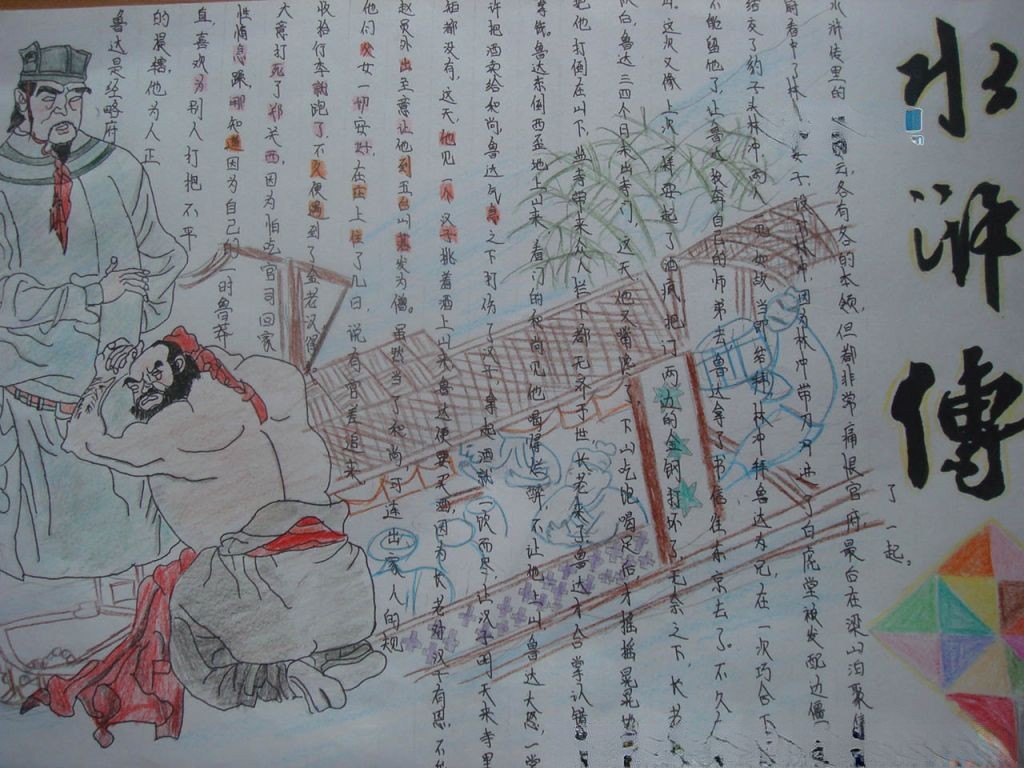 水滸傳
鲁达是经略府
的提辖,他为人正
直,喜欢为别人打把不平
性情急躁,哪知道因为自己的一时鲁莽
大意打死了郑关西,因为怕吃官司回家
收拾行李就跑了,不久便遇到了金老汉,
他们父女一切安好,在庄上住了几日,说有官差追来
赵员外出主意让他到五台山落发为僧。虽然当了和尚可连出家人的规
矩都没有,这天,他见一个汉子挑着酒上山来鲁达便要买酒,因为长老对汉子有恩,不
许把酒卖给和尚,鲁达气急之下打伤了汉子,拿起酒就一饮而尽,让汉子明天来寺里
拿钱。鲁达东倒西歪地上山来,看门的和尚见他喝得烂醉,不让他上山,鲁达大怒,一掌
把他打倒在山下,监寺带来众人拦下都无济于世,长老来了鲁达才合掌认错
鲁达三四个月未出寺门,这天他又嘴馋了,下山吃饱喝足后,才摇摇晃晃地
山。这次又像上次一样耍起了酒疯,把门两边的金钢打坏了无奈之下,长老
不能留他了,让鲁达投奔自己的师弟去,鲁达拿了书信往东京去了。不久
结交了豹子头林冲,两人一见如故,当即结拜,林冲拜鲁达为兄,在一次巧合下
看中了林女子,设计林冲,因为林冲带刀,误进了白虎堂被发配边疆
水浒传里的各有各的本领,但都非常痛恨官府,最后在梁山泊聚
了一起。